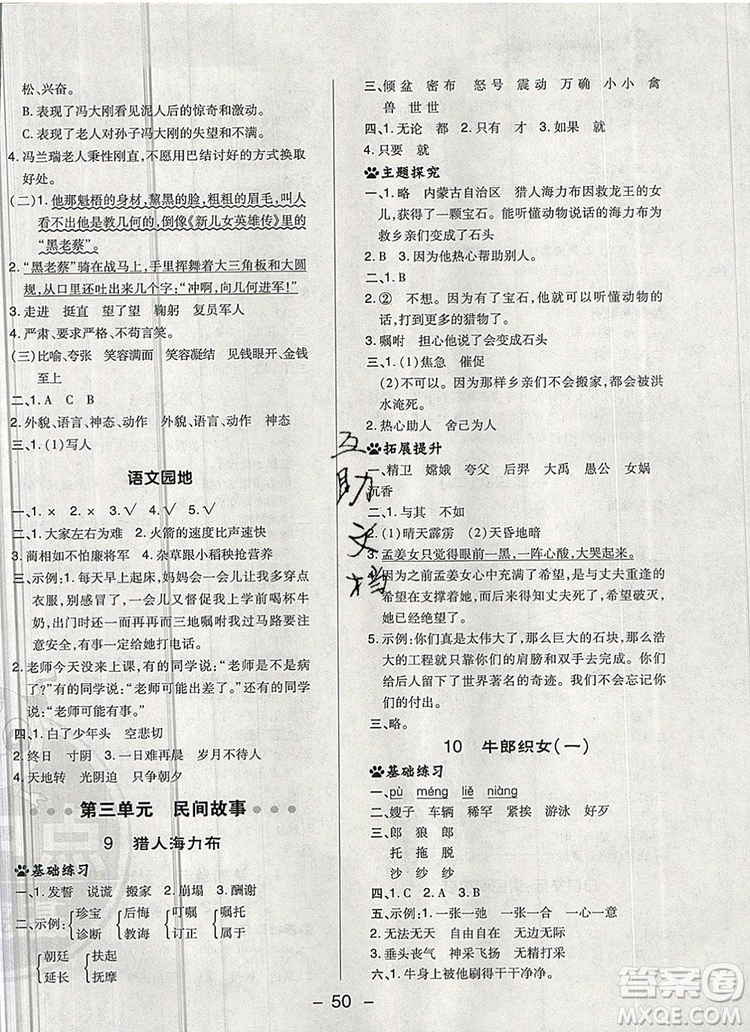 松、兴奋。
B. 表现了冯大刚看见泥人后的惊奇和激动。
C. 表现了老人对孙子冯大刚的失望和不满。
4. 冯兰瑞老人秉性刚直,不愿用巴结讨好的方式换取
好处。
(二)1. 他那魁梧的身材,黧黑的脸,粗粗的眉毛,叫人
看不出他是教几何的,倒像《新儿女英雄传》里的
“黑老蔡”。
2. “黑老蔡”骑在战马上,手里挥舞着大三角板和大圆
规,从口里还吐出来几个字:“冲啊,向几何进军!”
3. 走进 挺直 望了望 鞠躬 复员军人
4. 严肃、要求严格、不苟言笑。
(三)比喻、夸张 笑容满面 笑容凝结 见钱眼开、金钱
至上
二、1. A C B
2. 外貌、语言、神态、动作 外貌、语言、动作 神态
三、1. (1)写人
语文园地
一、1. × 2. × 3. √ 4. √ 5. √
二、1. 大家左右为难 2. 火箭的速度比声速快
3. 蔺相如不怕廉将军 4. 杂草跟小稻秧抢营养
三、示例:1. 每天早上起床,妈妈一会儿让我多穿点
衣服,一会儿提醒我别忘了洗脸刷牙,一会儿要喝杯牛
奶,出门时还一而再再而三地嘱咐过马路要
注意安全,有事一定给她打电话。
2. 老师今天没来上课,有的同学说:“老师可能生病
了。”有的同学说:“老师可能出差了。”还有的同学
说:“老师可能有事。”
四、1. 白了少年头 空悲切
2. 终日 寸阴 3. 一日难再晨 岁月不待人
4. 天地转 光阴迫 只争朝夕
第三单元 民间故事
9 猎人海力布
基础练习
一、1. 发誓 说谎 搬家 2. 崩塌 3. 酬谢
二、示例: 珍宝 后悔 叮嘱 嘱托
诊断 教诲 订正 属于
朝廷 扶起
延长 抚摩
三、倾盆 密布 怒号 震动 万确 小小 禽
兽 世世
四、1. 无论 都 2. 只有 才 3. 如果 就
4. 只要 就
主题探究
一、1. 略 内蒙古自治区 猎人海力布因救龙王的女
儿,获得了一颗宝石。能听懂动物说话的海力布为
救乡亲们变成了石头
2. B 3. 因为他热心帮助别人。
二、1. B
2. ② 不想。因为有了宝石,他可以听懂动物的
话,打到更多的猎物了。
3. 嘱咐 担心他说了会变成石头
三、1. (1)焦急 催促
(2)不可以。如果乡亲们不会搬家,都会被洪
水淹死。
2. 热心助人 舍己为人
拓展提升
一、精卫 嫦娥 夸父 后羿 大禹 愚公 女娲
沉香
二、1. 与其 不如
2. (1)晴天霹雳 (2)天昏地暗
3. 孟姜女只觉得眼前一黑,一阵心酸,大哭起来。
4. 因为之前孟姜女心中充满了希望,是与丈夫重逢的
希望在支撑着她,可现在丈夫死了,希望破灭了,她
已经绝望了。
5. 示例:你们真是太伟大了,那么巨大的石块,那么浩
大的工程竟是用你们的肩膀和双手去完成的,你们
给后人留下了世界著名的奇迹。
三、略。
10 牛郎织女(一)
基础练习
一、pù méng liě niàng
二、嫂子 车辆 稀罕 紧挨 游泳 好歹
三、郎 狼 郎
托 拖 脱
沙 纱 纱
四、1. C 2. A 3. B
五、示例:1. 一张一弛 一张一合
2. 无法无天 自由自在 无边无际
3. 垂头丧气 神采飞扬 兴高采烈
六、1. 牛身上被他刷得干干净净。
50
互助文档
答案圈
MXQE.COM